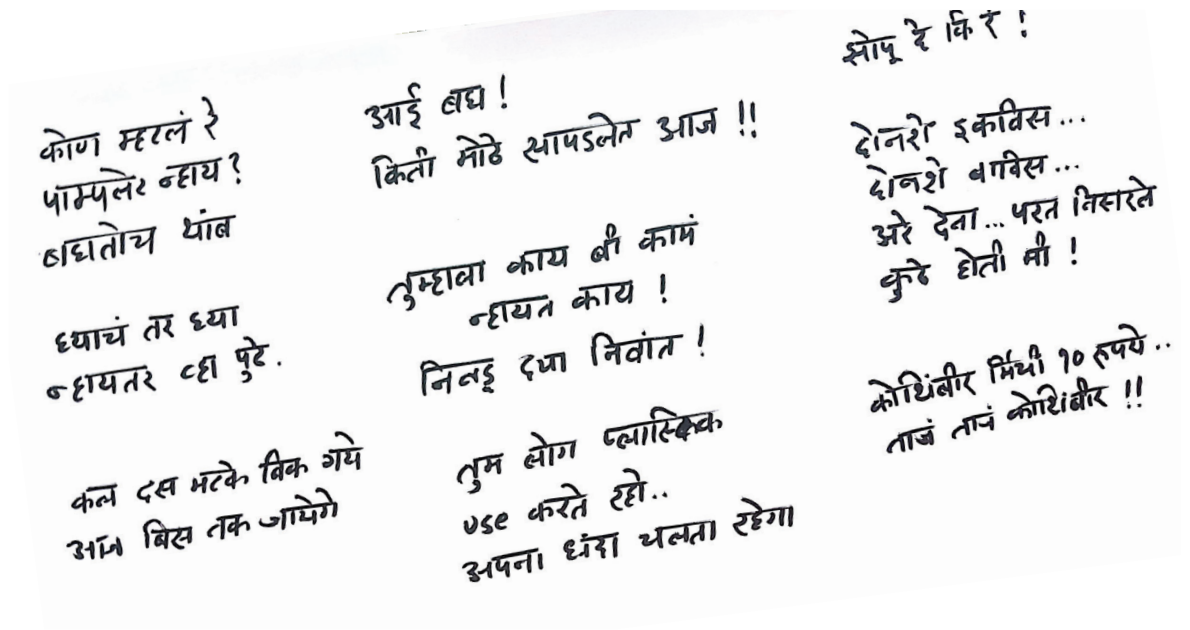 कोण म्हटलं रे
पाम्पलेट न्हाय?
बघतोच थांब
घ्याचं तर घ्या
न्हायतर व्हा पुढे.
कल दस मटके बिक गये
आज बिस तक जायेगे
आई बघ!
किती मोठे सापडलेत आज !!
तुम्हाला काय बी कामं
न्हायत काय !
निवडू द्या निवांत !
तुम लोग प्लास्टिक
use करते रहो..
अपना धंदा चलता रहेगा
झोपू दे कि रं !
दोनशे इकविस...
दोनशे बाविस...
अरे देवा... परत विसरले
कुठे होती मी !
कोथिंबीर मिथी १० रूपये..
ताजं ताजं कोथिंबीर !!